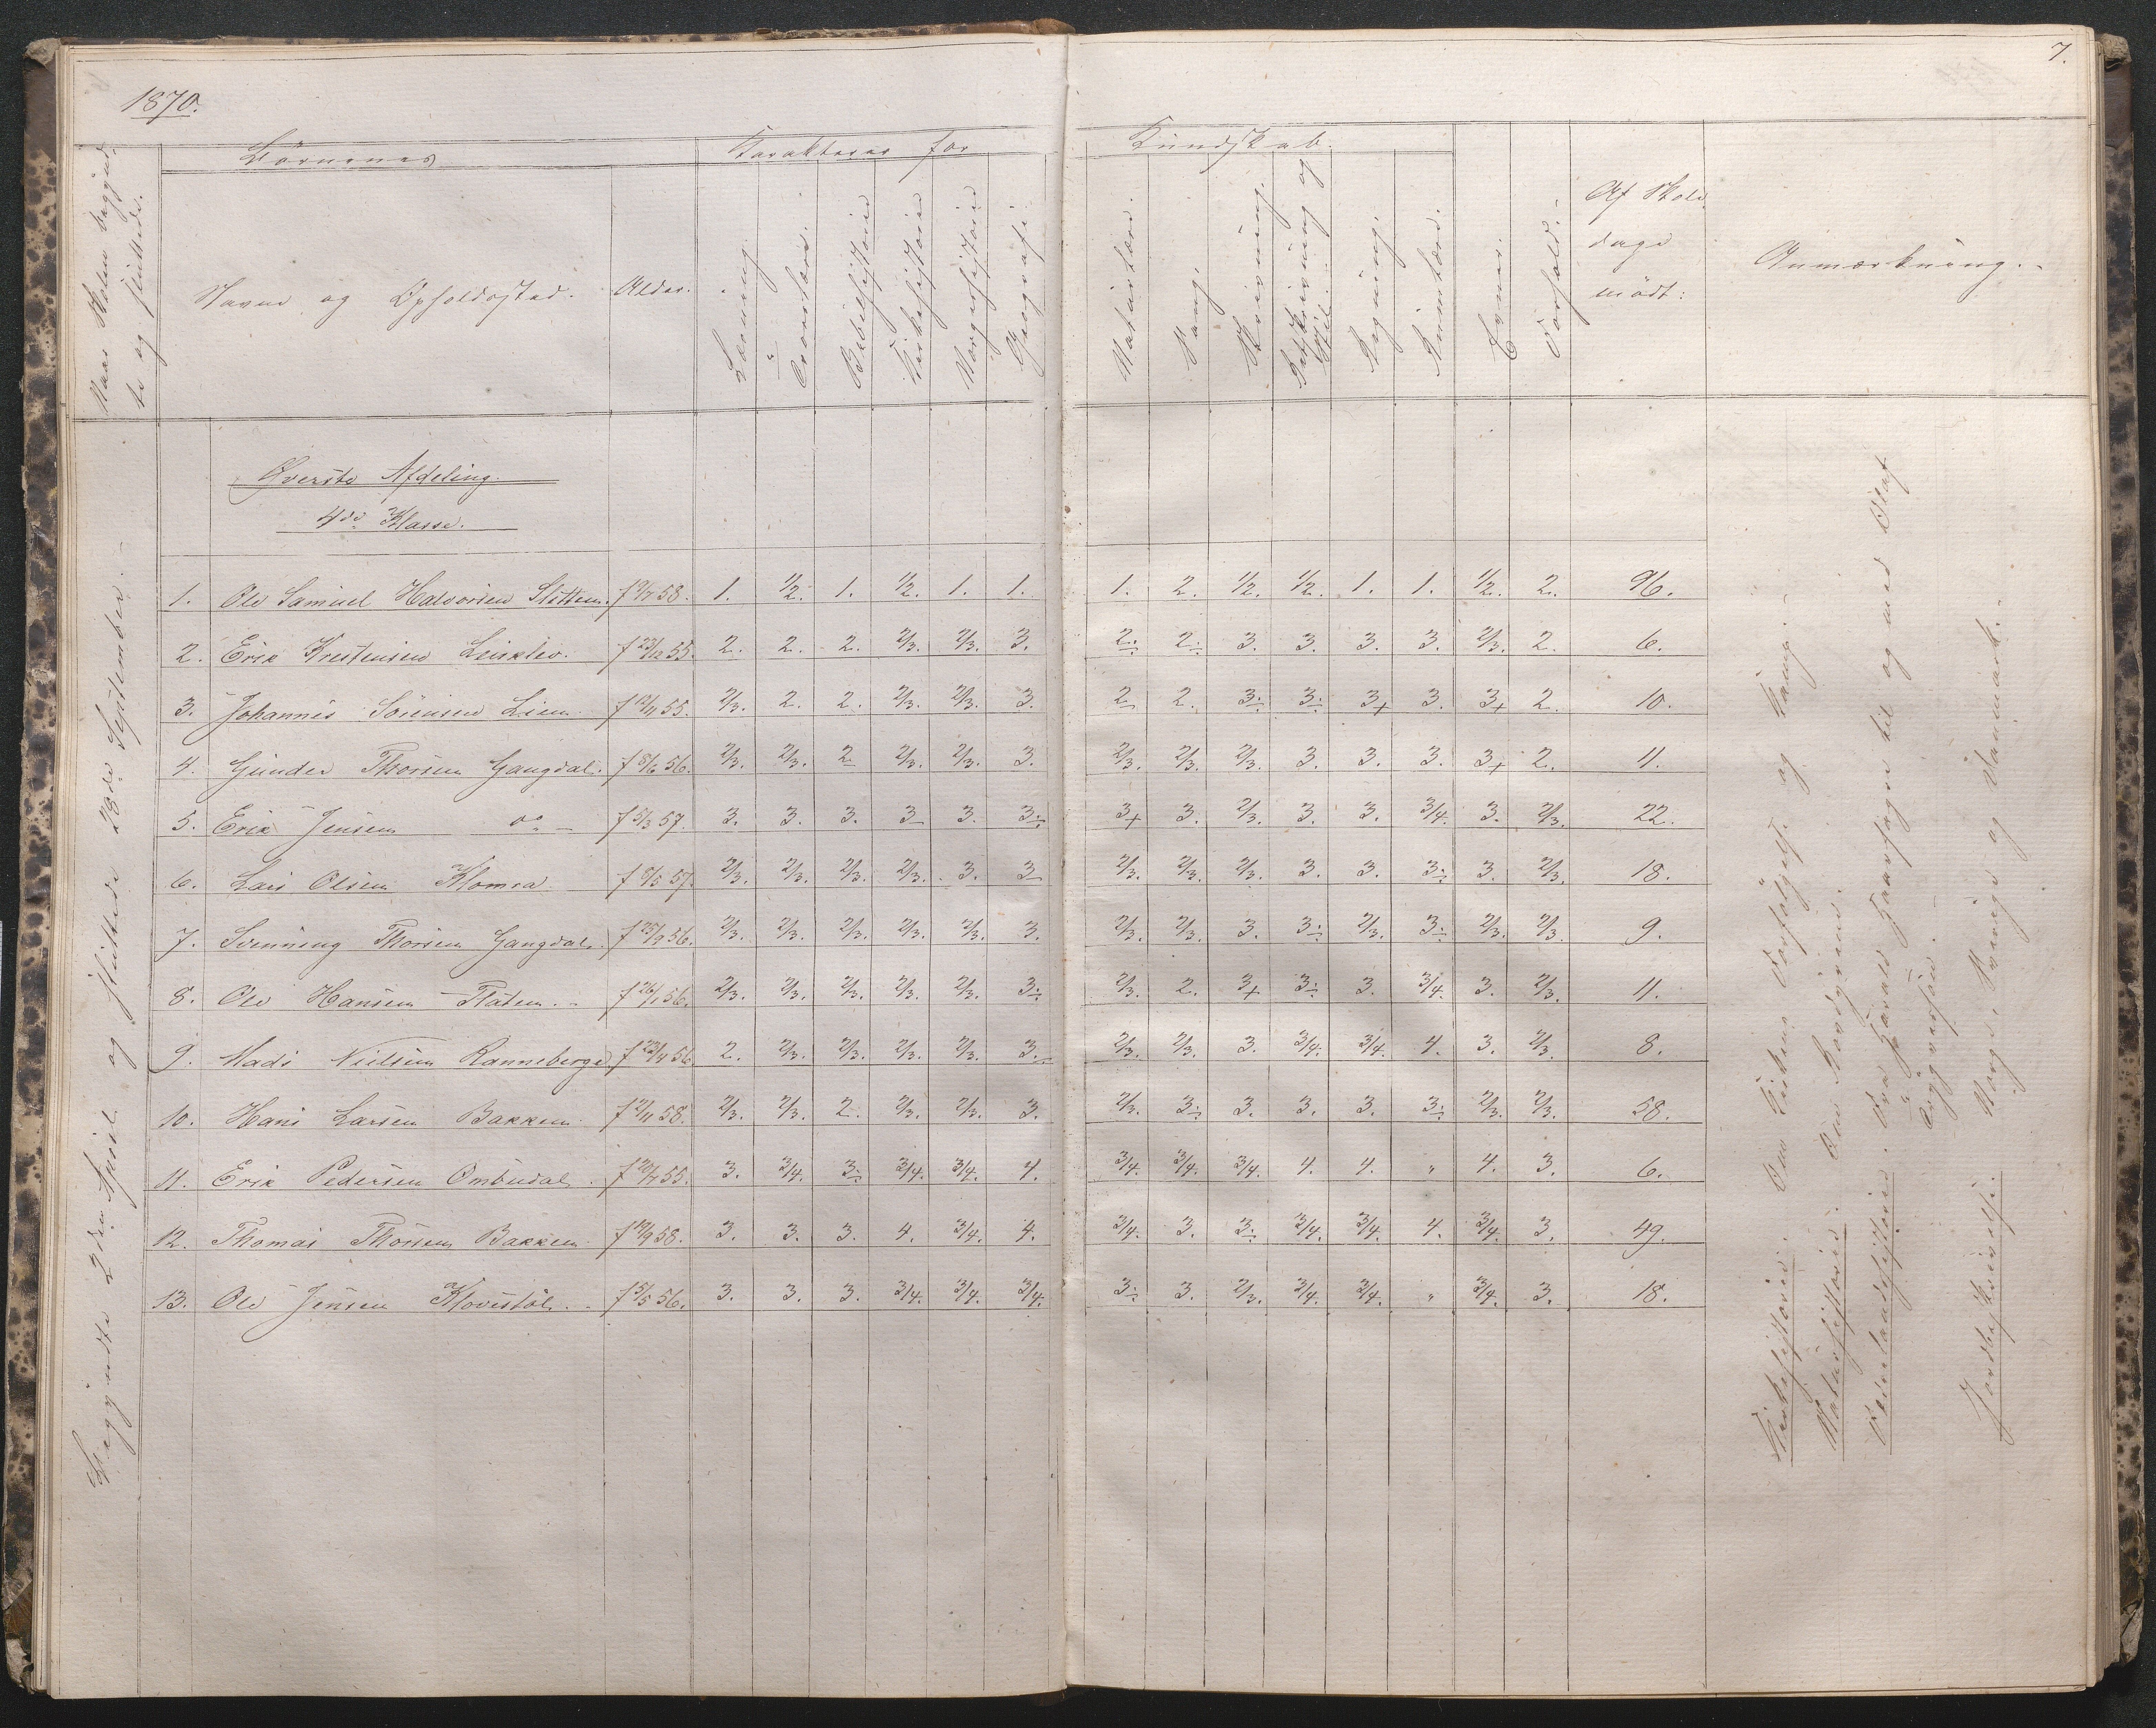 7.
1870.
Naar Skolen begynd-
te og sluttede.
Börnenes
Karakterer for
Kundskab.
Navne og Opholdssted.
Alder.
Læsning.
Troeslære.
Bibelhistorie
Kirkehistorie
Norgeshistorie
Geografi.
Naturlære.
Sang.
Skrivning.
Retskrivning og
Stil.
Regning.
Evner.
Forhold.
Af Skole
dage
mödt:
Anmærkning.
Begyndte 2den April og sluttede 28de September.
Øverste Afdeling.
4de Klasse.
1. Ole Samuel Halvorsen Sletten. f 9/7 58. 1. 1/2. 1. 1/2. 1. 1. 1. 2. 1/2. 1/2. 1. 1. 1/2. 2. 96.
2. Erik Krestensen f 23/12 55. 2. 2. 2. 2/3. 2/3. 3. 2.÷ 2.÷ 3. 3. 3. 3. 2/3. 2. 6.
3. Johannes Sörensen Lien f 12/11 55. 2/3. 2. 2. 2/3. 2/3. 3. 2 2. 3.÷ 3.÷ 3+ 3. 3+ 2. 10.
4. Gunder Thorsen Gangdal. f 8/6 56. 2/3. 2/3. 2 2/3. 2/3. 3. 2/3. 2/3. 2/3. 3. 3. 3. 3+ 2. 11.
5. Erik Jensen do f 5/3 57. 3. 3. 3. 3 3. 3.÷ 3+ 3. 2/3. 3. 3. 3/4. 3. 2/3. 22.
6. Lars Olsen Klomra f 9/5 57. 2/3. 2/3. 2/3. 2/3. 3. 3 2/3. 2/3. 2/3. 3. 3. 3.÷ 3. 2/3. 18.
7. Svenning Thorsen Gangdal. f 25/3 56. 2/3. 2/3. 2/3. 2/3. 2/3. 3. 2/3. 2/3. 3. 3.÷ 2/3. 3.÷ 2/3. 2/3. 9.
8. Ole Hansen Flaten. f 26/1 56. 2/3. 2/3. 2/3. 2/3. 2/3. 3.÷ 2/3. 2. 3+ 3.÷ 3. 3/4. 3. 2/3. 11.
9. Mads Nielsen Ranneberge f 23/4 56 2. 2/3. 2/3. 2/3. 2/3. 3.÷ 2/3. 2/3. 3. 3/4. 3/4. 4. 3. 2/3. 8.
10. Hans Larsen Bakken. f 2/11 58. 2/3. 2/3. 2. 2/3. 2/3. 3. 2/3. 3.÷ 3. 3. 3. 3.÷ 2/3. 2/3. 58.
11. Erik Pedersen Ombudal. f 20/7 55. 3. 3/4. 3.÷ 3/4. 3/4. 4. 3/4. 3/4. 3/4. 4. 4. " 4. 3. 6.
12. Thomas Thorsen Bakken f 14/9 58. 3. 3. 3. 4. 3/4. 4. 3/4. 3. 3.÷ 3/4. 3/4. 4. 3/4. 3. 49.
13. Ole Jensen Klovestöl. f 5/5 56. 3. 3. 3. 3/4. 3/4. 3/4. 3.÷ 3. 2/3. 3/4. 3/4. " 3/4. 3. 18.
Kirkehistorie. Om Kirkens Forfölgelse og Kamp.
Naturhistorie. Om Hovdyrene.
Fædrelandshistorie. Fra Harald Haarfager til og med Olaf
Tryggvessön.
Jordbeskrivelse. Norge, Sverige og Danmark.